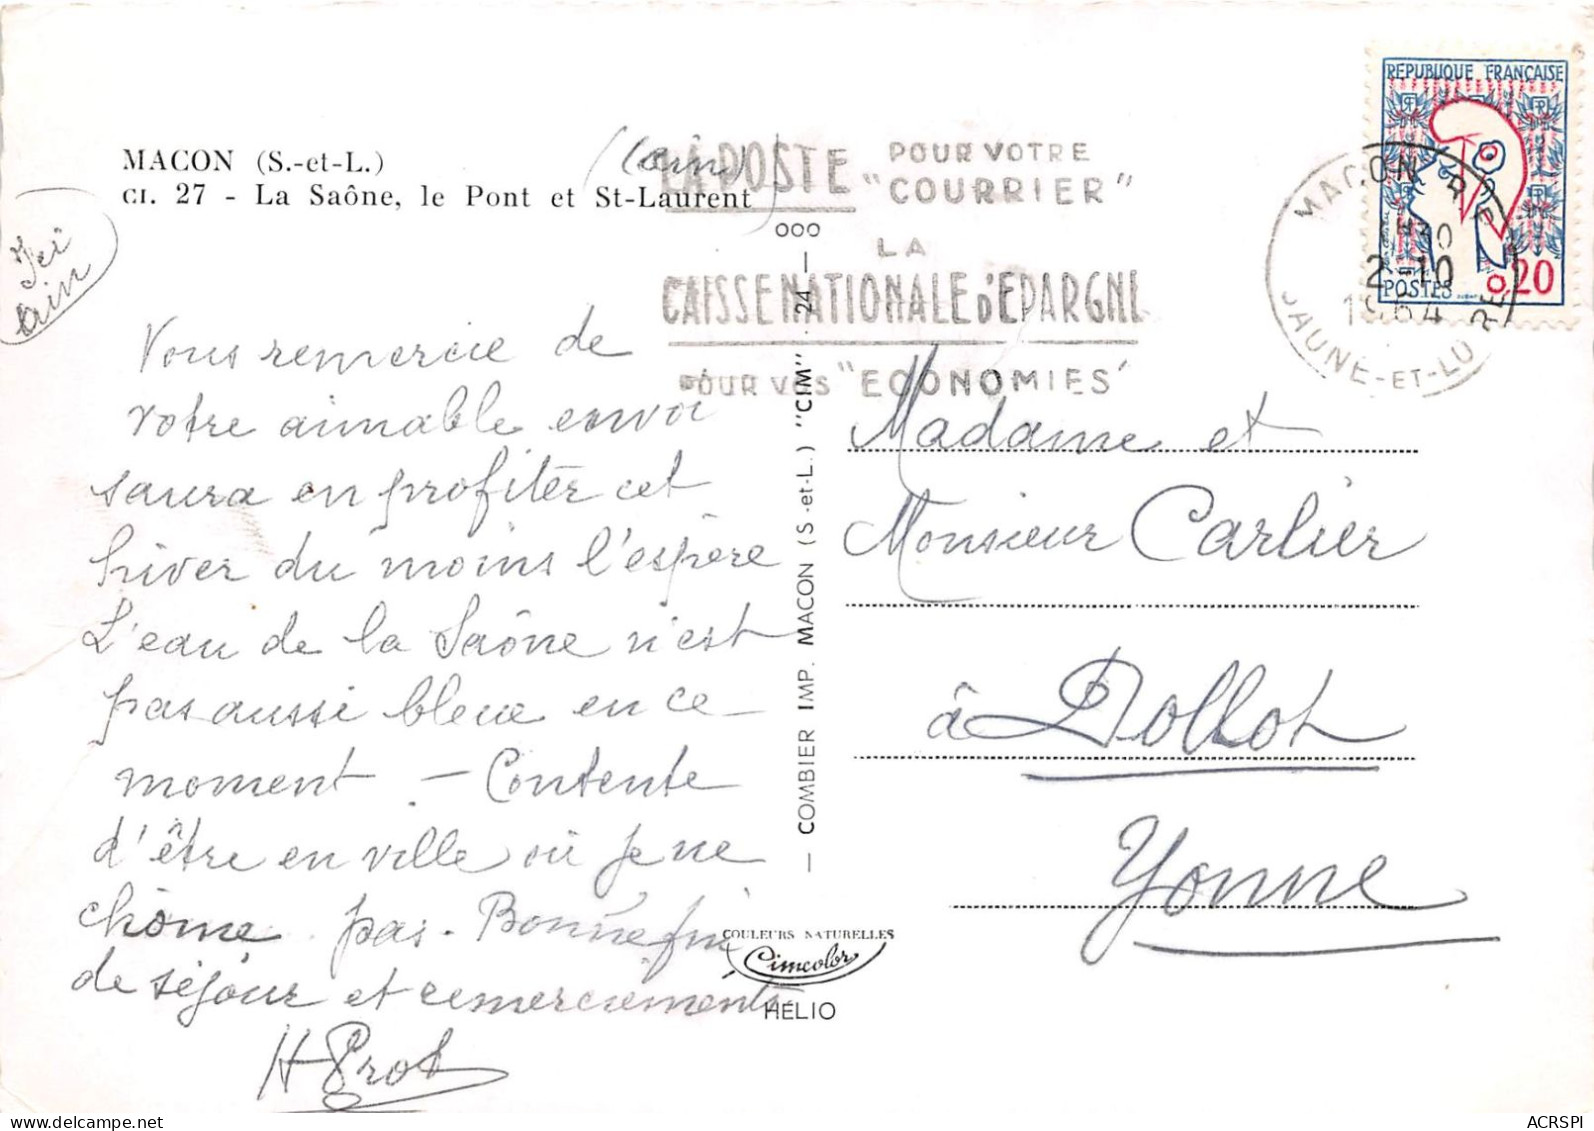 MACON (S.-et-L.)
CI. 27 - La Saône, le Pont et St-Laurent
(ain)
Ici
ain
LA POSTE POUR VOTRE "COURRIER"
LA
CAISSE NATIONALE D'EPARGNE
POUR VOS "ECONOMIES"
REPUBLIQUE FRANÇAISE
POSTES 0,20
MACON R.P.
2-10
1964
SAONE-ET-LOIRE
Vous remercie de
votre aimable envoi
saura en profiter cet
hiver du moins l'espère
L'eau de la Saône n'est
pas aussi bleue en ce
moment - Contente
d'être en ville où je ne
chôme pas. Bonne fin
de séjour et remerciements
H Prot
— COMBIER IMP. MACON (S.-et-L.) "CIM" 24 — ooo
COULEURS NATURELLES
Cimcolor
HÉLIO
Madame et
Monsieur Carlier
à Dollot
Yonne
ACRSPI